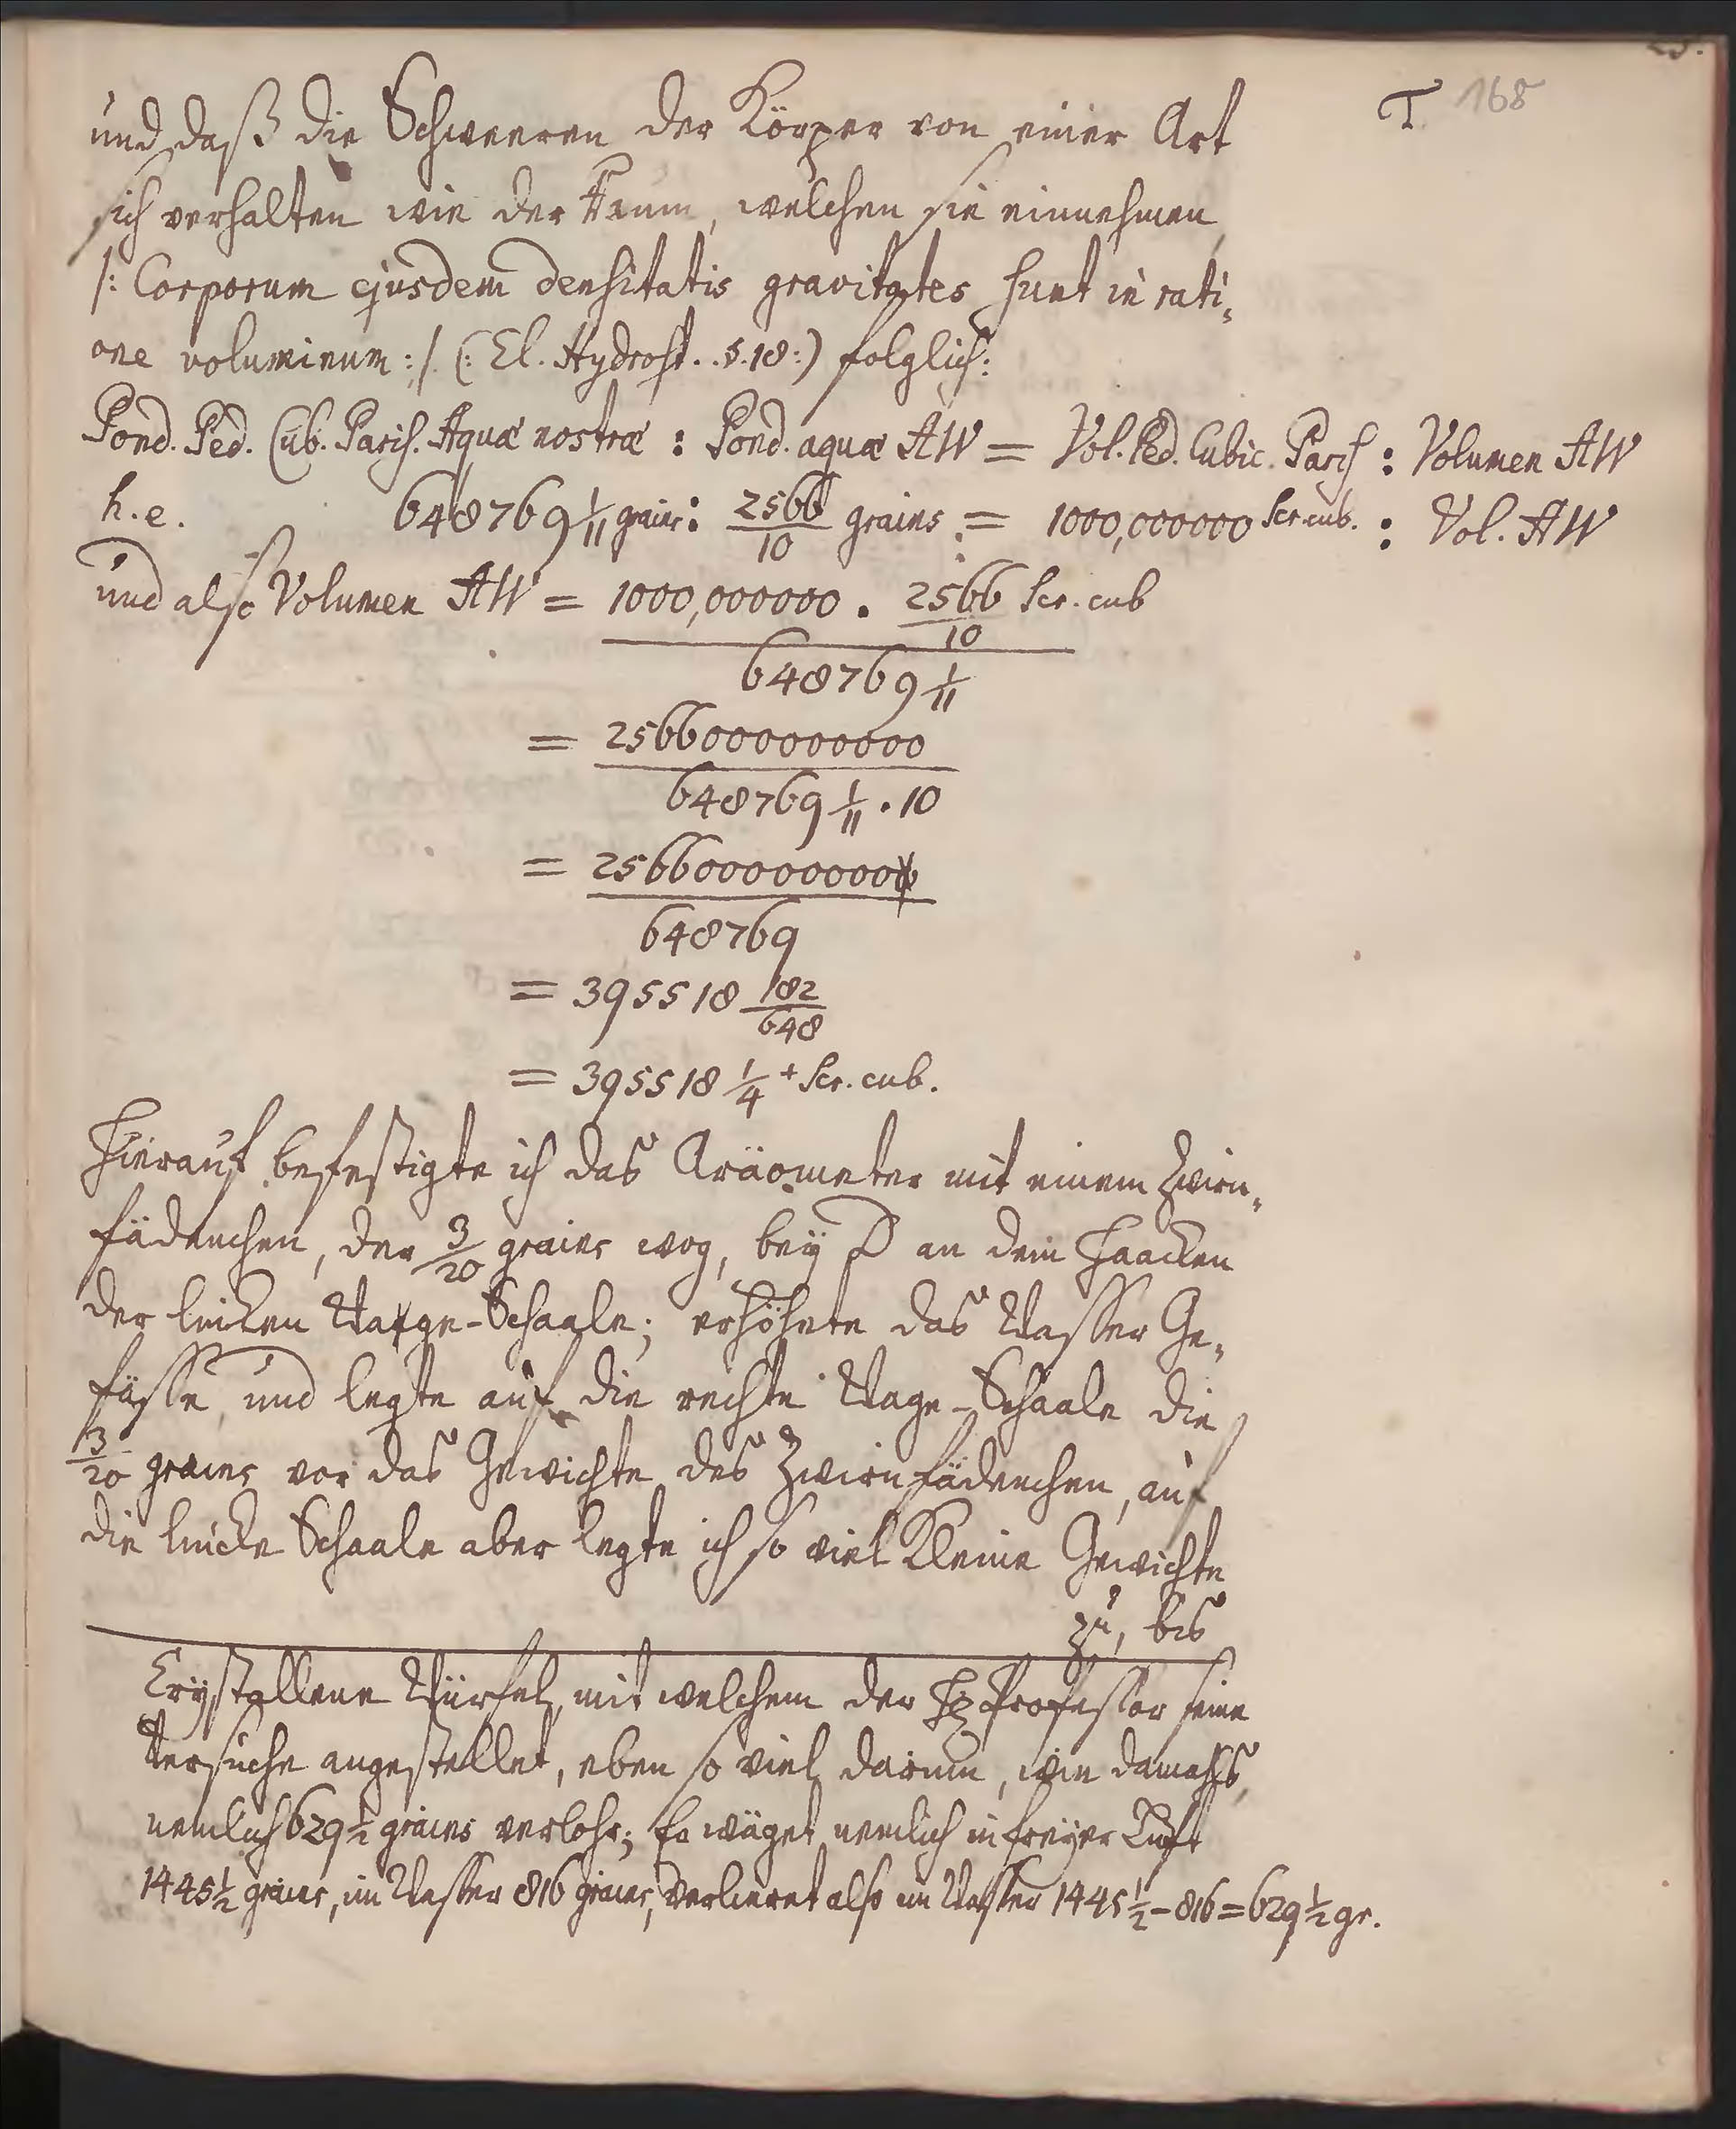 T. 168
und daß die Schweeren der Körper von einer Art
sich verhalten wie der Raum, welchen sie einnehmen
/: Corporum ejusdem densitatis gravitates sunt in rati„
one voluminum :/. (: El. Hydrost. . §. 18 :) folglich:
Pond. Ped. Cub. Paris. Aquæ nostræ : Pond. aquæ AW = Vol. Ped. Cubic. Paris : Volumen AW
h. e. 648769 1/11 grains : 2566/10 grains = 1000,000000 Scr. cub. : Vol. AW
und also Volumen AW = 1000,000000 . 2566/10 Scr. cub
648769 1/11
= 2566000000000
648769 1/11 . 10
= 2566000000000
648769
= 395518 182/648
= 395518 1/4 + Scr. cub.
Hierauf befestigte ich das Aräometer mit einem Zwirn„
fädenchen, der 3/20 grains wog, bey D an dem Haacken
der lincken Waage-Schaale; erhöhete das Wasser Ge„
fässe, und legte auf die rechte Wage-Schaale die
3/20 grains vor das Gewichte des Zwirnfädenchen, auf
die lincke Schaale aber legte ich so viel kleine Gewichte
zu, bis
Crystallene Würfel, mit welchem der Hr Professor seine
Versuche angestellet, eben so viel darinn, wie damahls,
nemlich 629 1/2 grains verlohr; Er wäget nemlich in freyer Luft
1445 1/2 grains, im Wasser 816 grains, verlieret also im Wasser 1445 1/2 - 816 = 629 1/2 gr.